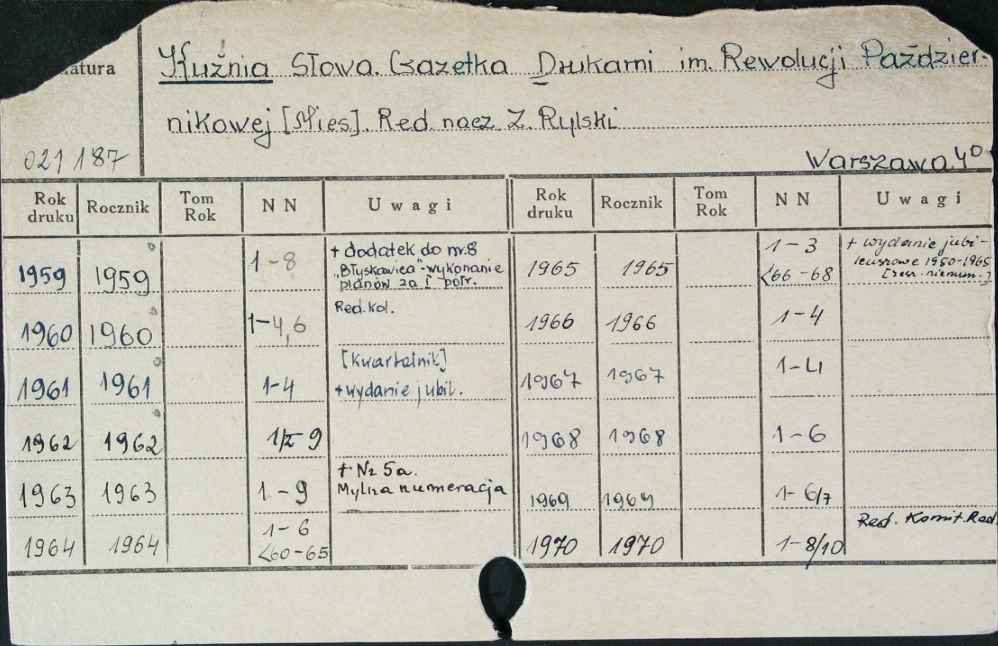 atura
Kuźnia Słowa. Gazetka Drukarni im. Rewolucji Paździer-
nikowej [Mies]. Red. nacz. Z. Rylski
021187
Warszawa 4°
Rok druku Rocznik Tom Rok NN Uwagi Rok druku Rocznik Tom Rok NN Uwagi
1959 1959 1-8 + dodatek do nr. 8 „Błyskawica"-wykonanie planów za I półr. 1965 1965 1-3 <66-68 + wydanie jubi-leuszowe 1950-1965 [zesz. nienum.]
1960 1960 1-4,6 Red. kol. 1966 1966 1-4
1961 1961 1-4 [Kwartalnik] + wydanie jubil. 1967 1967 1-4
1962 1962 9 1968 1968 1-6
1963 1963 1-9 + Nr 5a. Mylna numeracja 1969 1969 1-6/7
1964 1964 1-6 <60-65 1970 1970 1-8/10 Red. Komit. Red